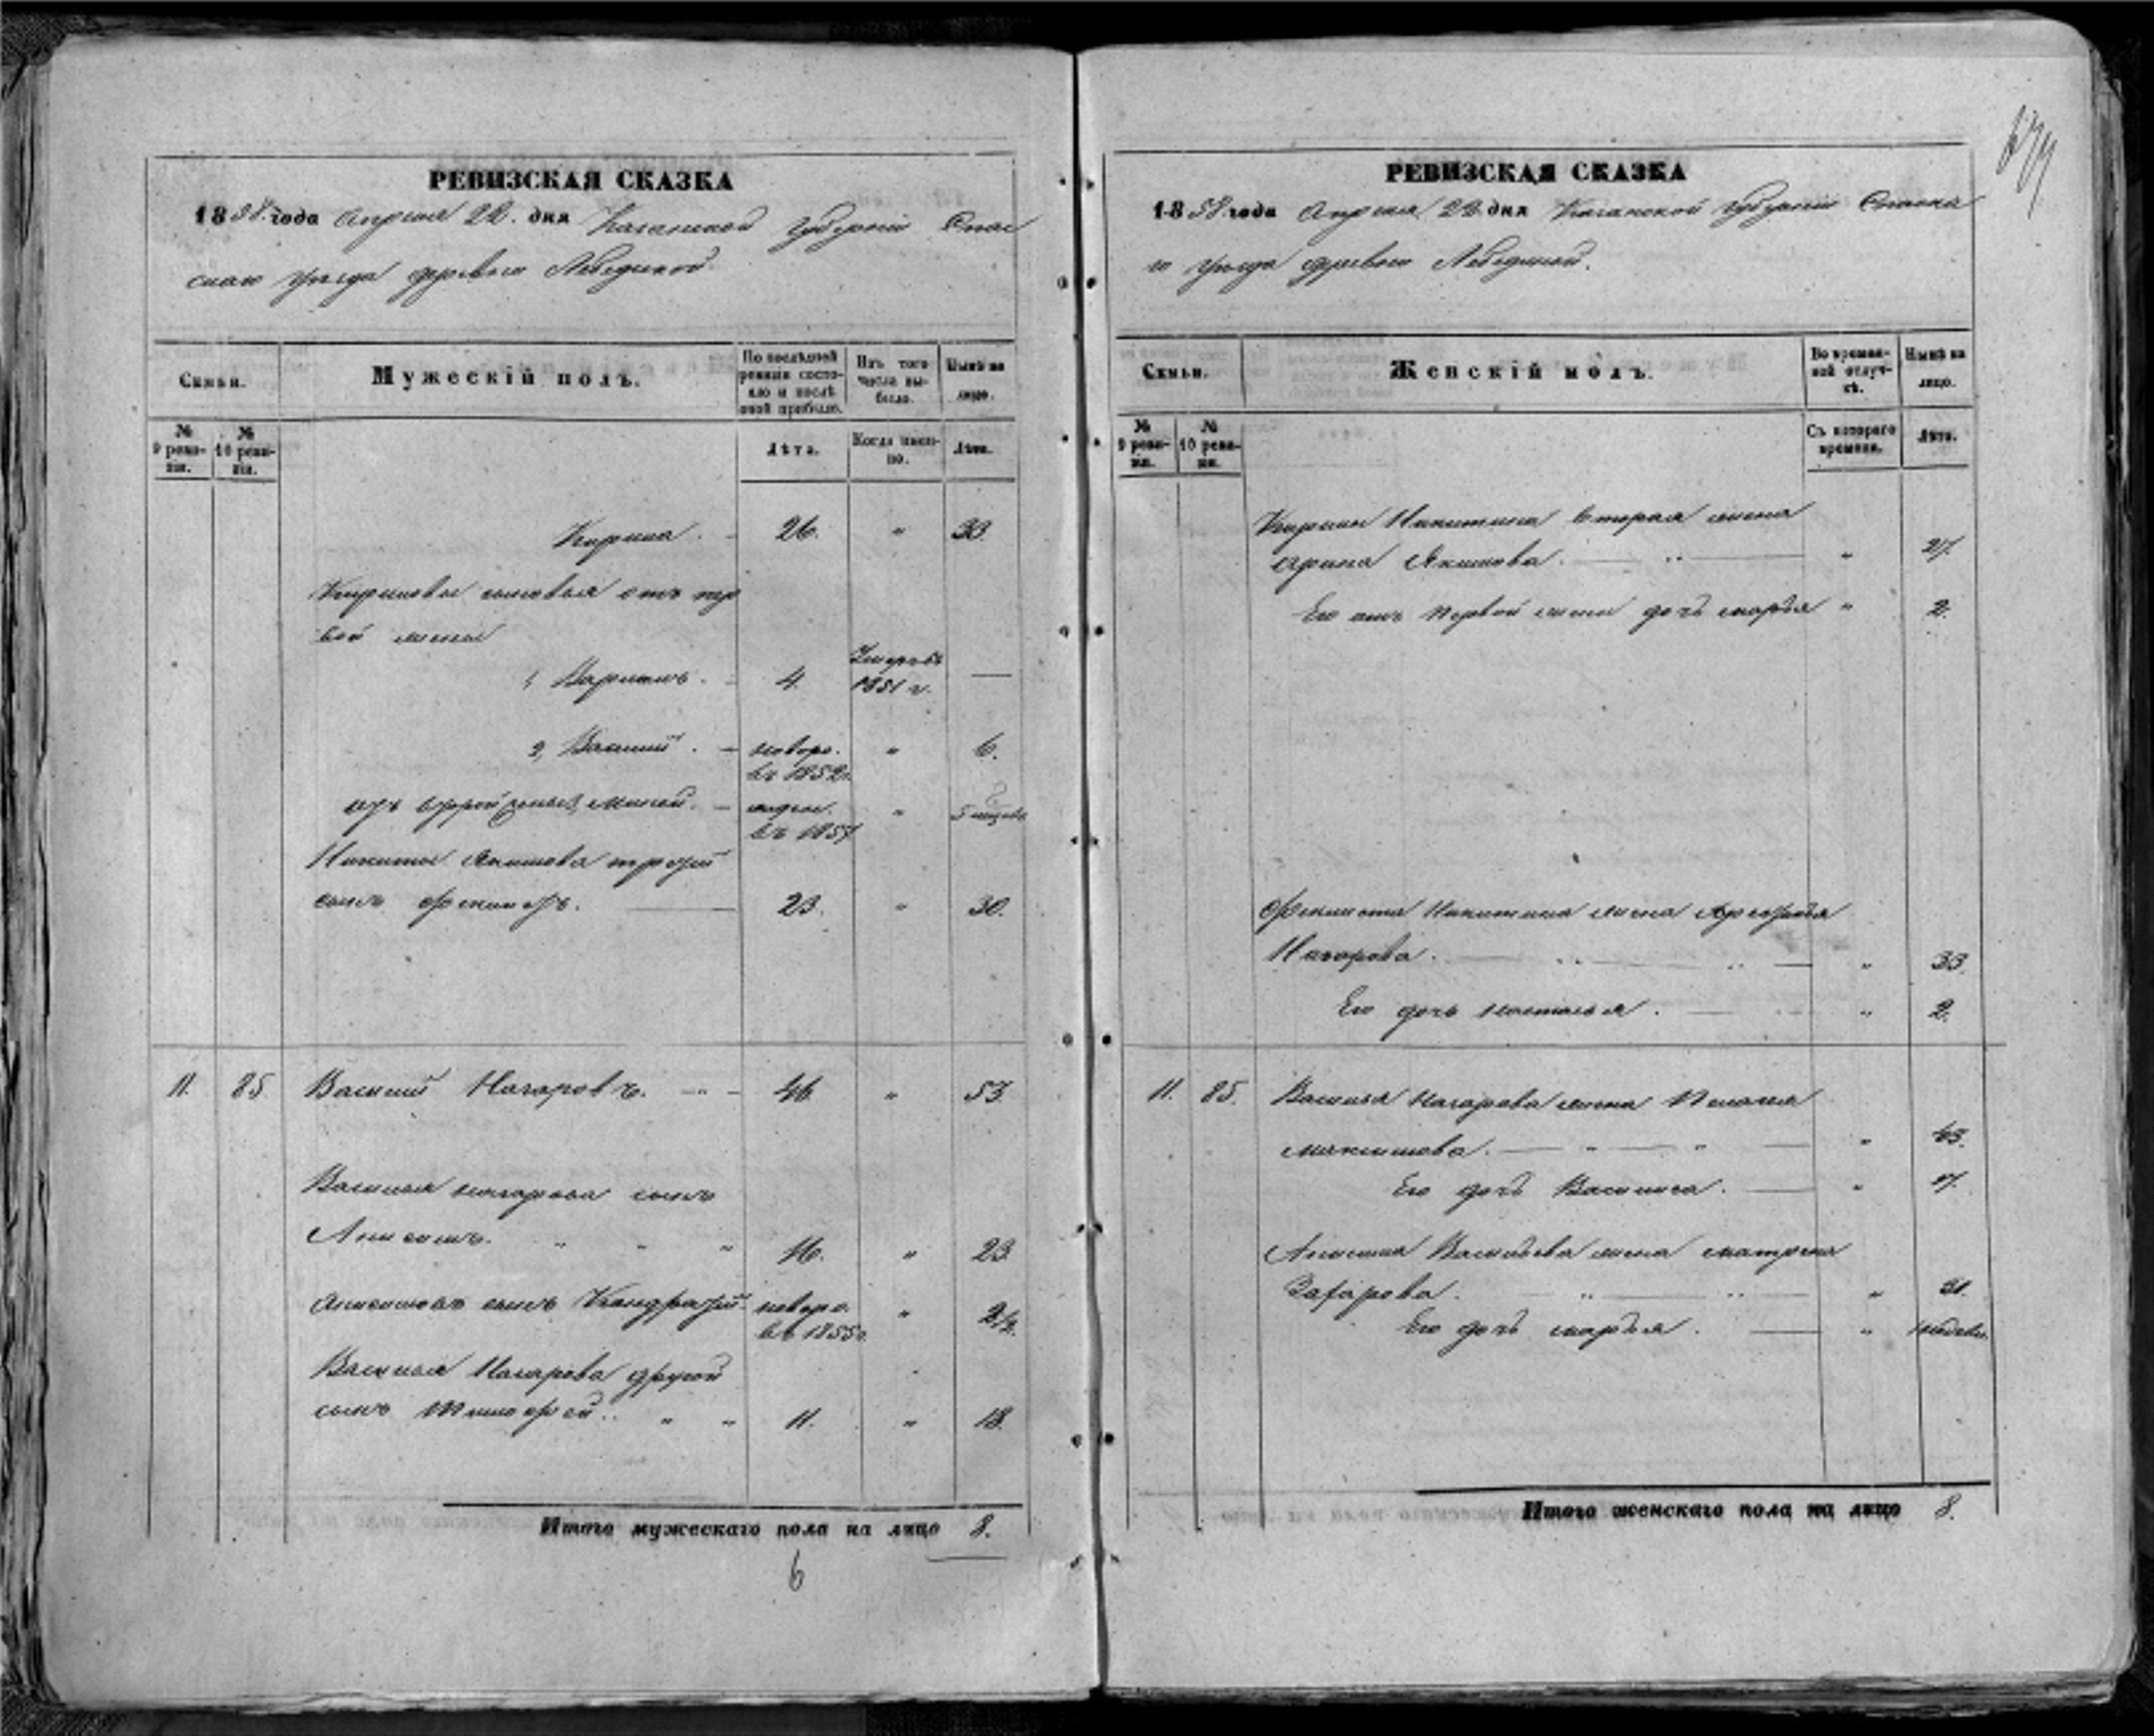 РЕВИЗСКАЯ СКАЗКА
1858 года Апреля 22 дня Казанской Губернии Спас
скаго уезда деревни Лебединой.
Семьи.
Мужескій полъ.
По послѣдней ревизіи состояло и послѣ оной прибыло.
Изъ того числа выбыло.
Нынѣ на лицо.
№ 9 ревизіи.
№ 10 ревизіи.
Лѣта.
Когда именно.
Лѣта.
Кирила. 26. " 33.
Кириловы сыновья отъ пер
вой жены
1, Варламъ. 4. Умеръ въ 1851 г. —
2, Василий. новоро. въ 1852 г. " 6.
отъ второй жены, въ 1857 "
Никиты Акимова третій
сынъ Феклистъ. 23. " 30.
11. 85. Василий Назаровъ. 46. " 53.
Василья Назарова сынъ
Анисимъ. " " " 16. " 23.
Анисимовъ сынъ Кондратій новоро. въ 1855 г. " 2½.
Василья Назарова другой
сынъ Тимофей. " " 11. " 18.
Итого мужескаго пола на лицо 8.
6
РЕВИЗСКАЯ СКАЗКА
1858 года Апреля 22 дня Казанской Губернии Спаска
го уезда деревни Лебединой.
Семьи.
Женскій полъ.
Во временной отлучкѣ.
Нынѣ на лицо.
№ 9 ревизіи.
№ 10 ревизіи.
Съ котораго времени.
Лѣта.
Кирилы Никитина вторая жена
Арина Акимова. " 27.
Его отъ первой жены дочь Марья " 2.
Феклиста Никитина жена
Назарова. " 33.
Его дочь Настасья. " 2.
11. 85. Василья Назарова жена Пелагея
Максимова. " "
Его дочь Василиса. " 7.
Анисима Васильева жена Матрена
Захарова. "
Его дочь Марья. "
Итого женскаго пола на лицо 8.